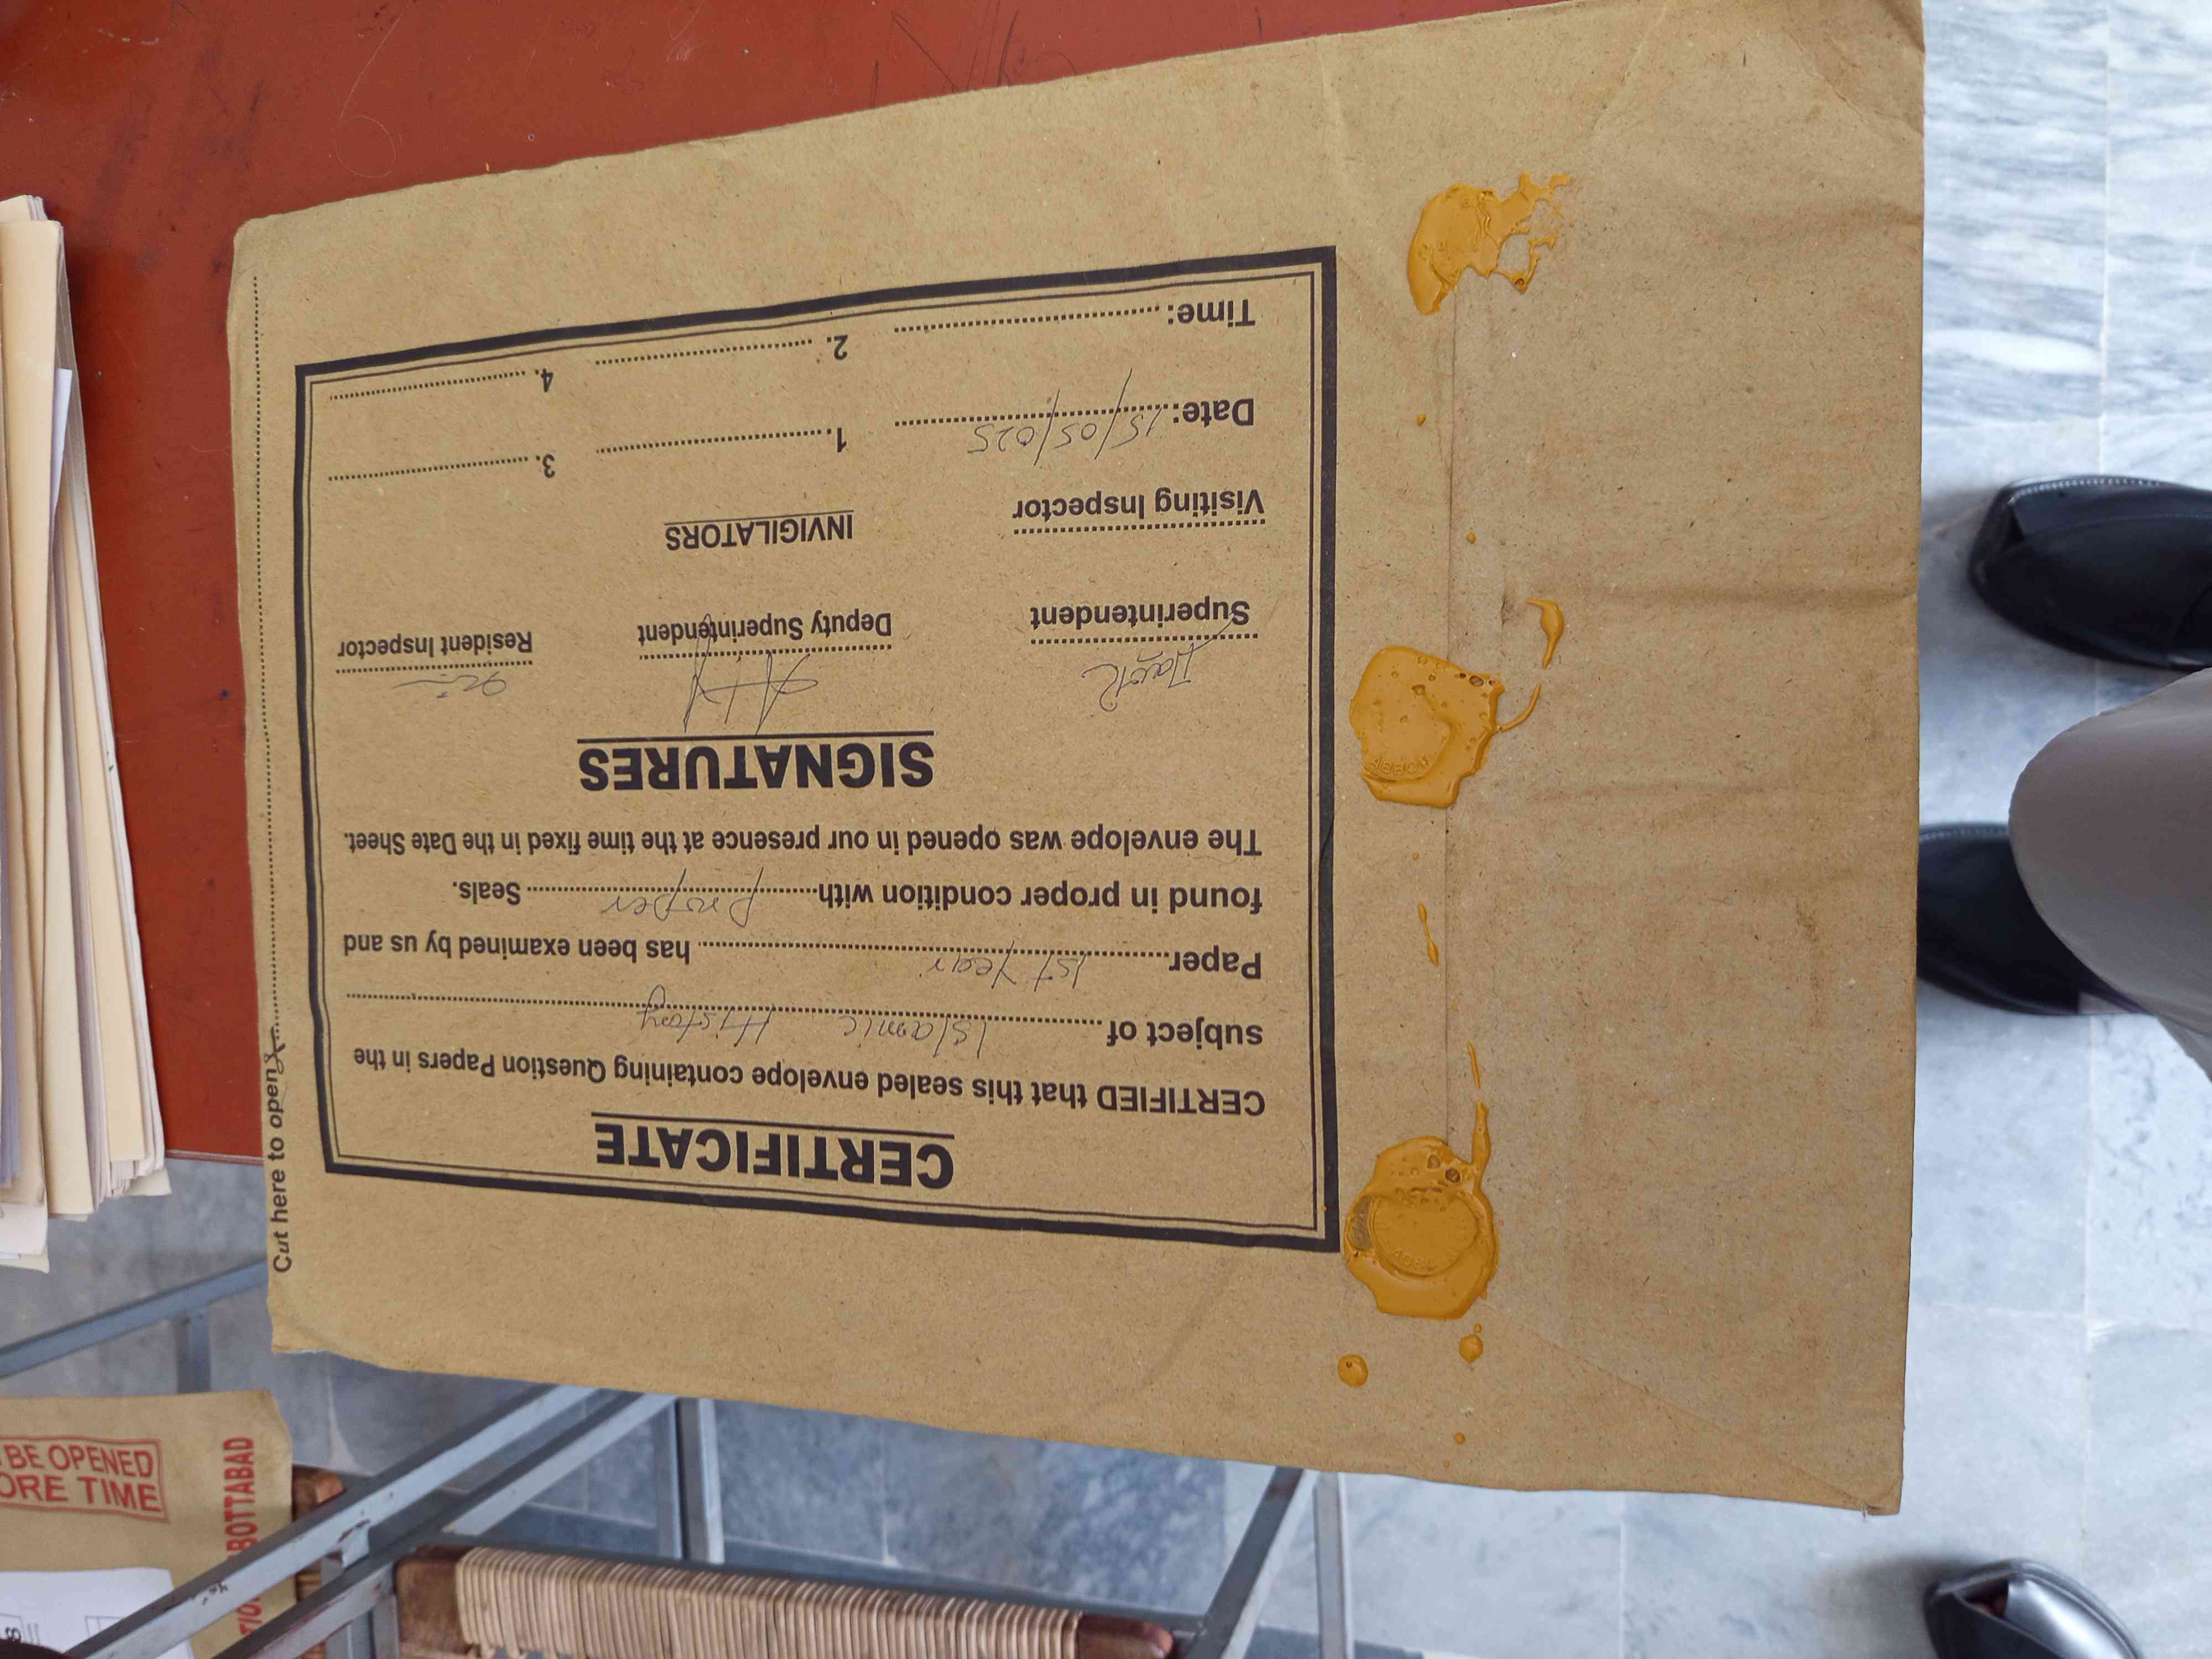 Cut here to open
CERTIFICATE
CERTIFIED that this sealed envelope containing Question Papers in the
subject of Islamic History
Paper 1st Year has been examined by us and
found in proper condition with proper Seals.
The envelope was opened in our presence at the time fixed in the Date Sheet.
SIGNATURES
Superintendent Deputy Superintendent Resident Inspector
Visiting Inspector INVIGILATORS
Date: 15/05/025 1. 3.
Time: 2. 4.
BE OPENED
ORE TIME
BOTTABAD